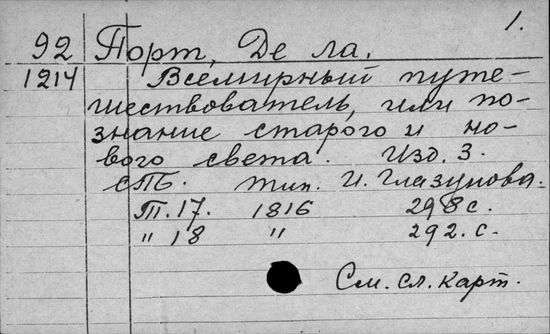 1.
92 Порт, Де ла.
1214 Всемирный путе-
шествователь, или по-
знание старого и но-
вого света. Изд. 3.
СПб. тип. И. Глазунова.
Т. 17. 1816 298 с.
" 18 " 292. с.
См. сл. карт.